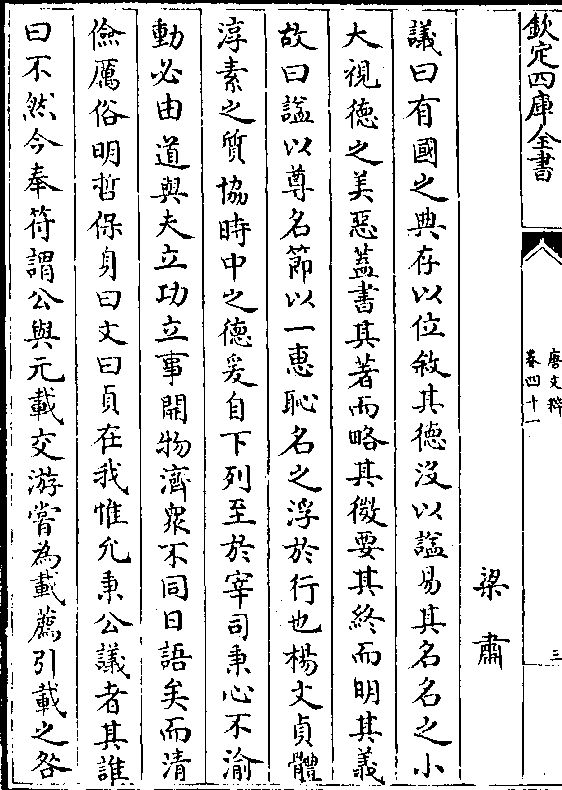 欽定四庫全書
唐文粹
卷四十一
三
梁肅
議曰有國之典存以位敘其德沒以諡易其名名之小
大視德之美惡蓋書其著而略其微要其終而明其義
故曰諡以尊名節以一惠恥名之浮於行也楊文貞體
淳素之質協時中之德爰自下列至於宰司秉心不渝
動必由道與夫立功立事開物濟衆不同日語矣而清
儉厲俗明哲保身曰文曰貞在我惟允秉公議者其誰
曰不然今奉符謂公與元載交游嘗為載薦引載之咎